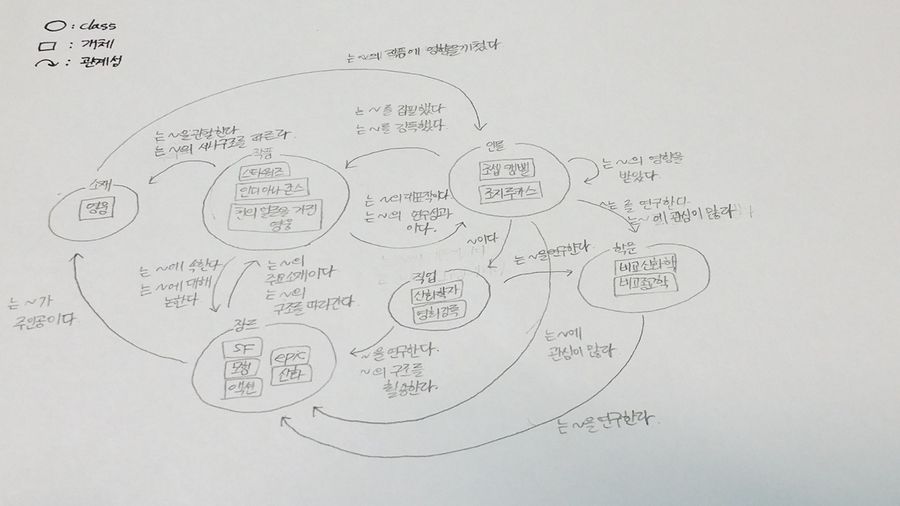 ○ : class
□ : 개체
↷ : 관계성
는 ~의 작품에 영향을 끼쳤다
는 ~을 관통한다.
는 ~의 서사구조를 따른다.
는 ~를 집필했다
는 ~를 감독했다
작품
스타워즈
인디아나 존스
천의 얼굴을 가진
영웅
인물
조셉 캠벨
조지루카스
는 ~의 영향을
받았다.
소재
영웅
는 ~의 대표작이다.
는 ~의 연구성과
이다.
~이다
는 를 연구한다.
는 ~에 관심이 많다
는 ~을 연구한다.
학문
비교신화학
비교종교학
직업
신화학자
영화감독
는 ~에 속한다
는 ~에 대해
논한다
는 ~의
주요소재이다.
는 ~의
구조를 따라간다.
는 ~가
주인공이다.
장르
SF
모험
액션
epic
신화
~을 연구한다.
~의 구조를
활용한다.
는 ~에
관심이 많다
는 ~을 연구한다.